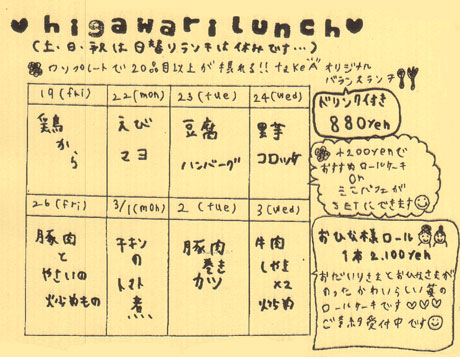 ♥higawari lunch♥
(土・日・祝は日替りランチは休みです…)
ワンプレートで20品目以上が摂れる!! takeオリジナルバランスランチ
19(fri) 22(mon) 23(tue) 24(wed)
鶏から
えびマヨ
豆腐ハンバーグ
里芋コロッケ
26(fri) 3/1(mon) 2(tue) 3(wed)
豚肉とやさいの炒めもの
チキンのトマト煮
豚肉巻きカツ
牛肉
炒め
ドリンク付き
880yen
+200yenで
おすすめロールケーキ
or
ミニパフェが
SETにできます
おひな様ロール
1本 2,100yen
おだいりさまとおひなさまが
のったかわいらしい苺の
ロールケーキです♡♡♡
ご予約受付中です